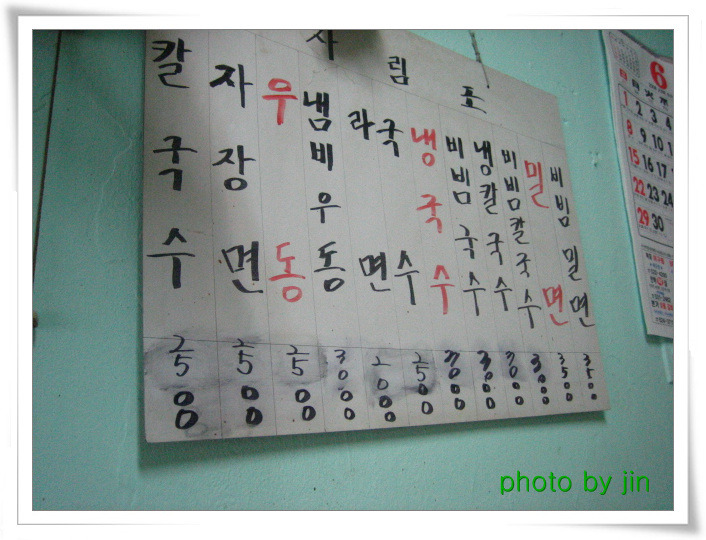 차림표
칼국수 2500
자장면 2500
우동 2500
냄비우동 3000
라면 2000
국수 2500
냉국수 3000
비빔국수 3000
냉칼국수 3000
비빔칼국수 3000
밀면 3500
비빔밀면 3500
6
1 2 3 4
8 9 10
15 16 17
22 23 24
29 30
photo by jin